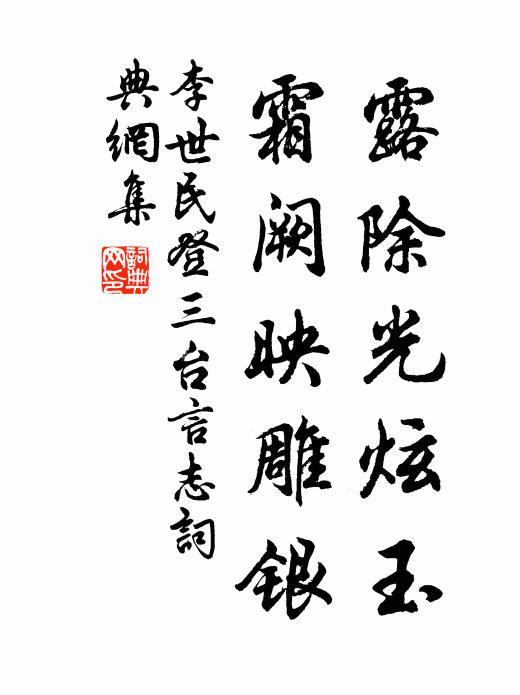 露除光炫玉
霜阙映雕银
李世民登三台言志詞
典網集
詞典
网印